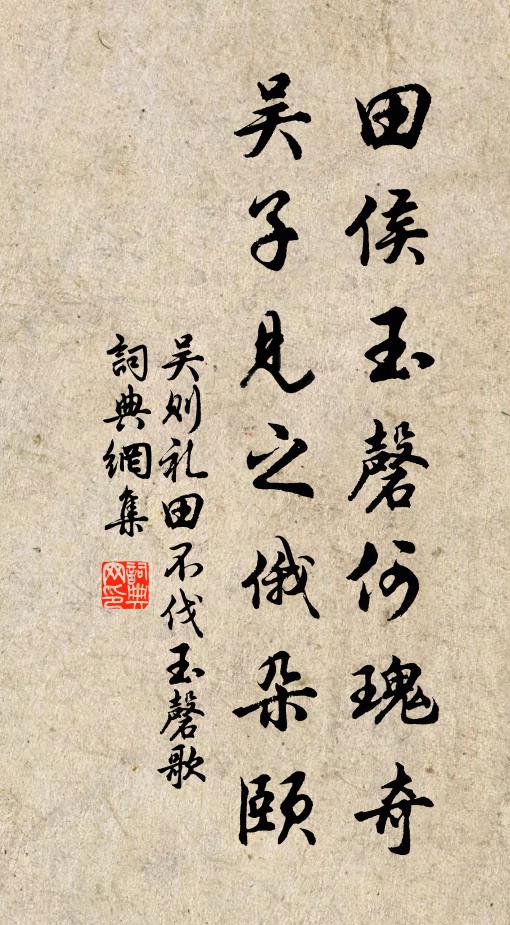 田侯玉磬何瑰奇
吴子見之俄朵頤
吴则礼田不伐玉磬歌
詞典網集
詞典网印